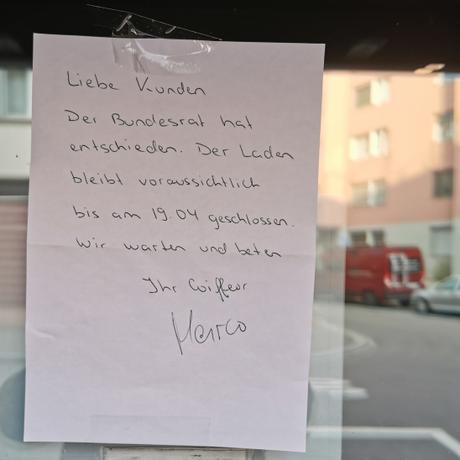 Liebe Kunden
Der Bundesrat hat
entschieden. Der Laden
bleibt voraussichtlich
bis am 19.04 geschlossen.
Wir warten und beten
Ihr Coiffeur
Marco